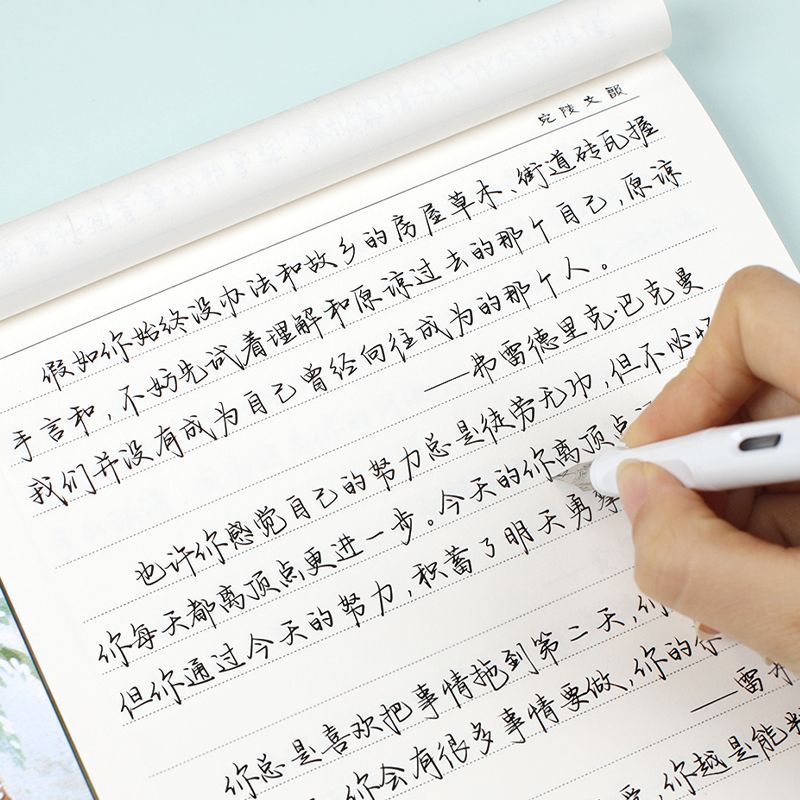 宛陵文韻
假如你始终没办法和故乡的房屋草木、街道砖瓦握
手言和，不妨先试着理解和原谅过去的那个自己，原谅
我们并没有成为自己曾经向往成为的那个人。
——弗雷德里克·巴克曼
也许你感觉自己的努力总是徒劳无功，但不必
你每天都离顶点更进一步。今天的你离顶点
但你通过今天的努力，积蓄了明天勇
你总是喜欢把事情拖到第二天，
你会有很多事情要做，你的
——雷
你越是能